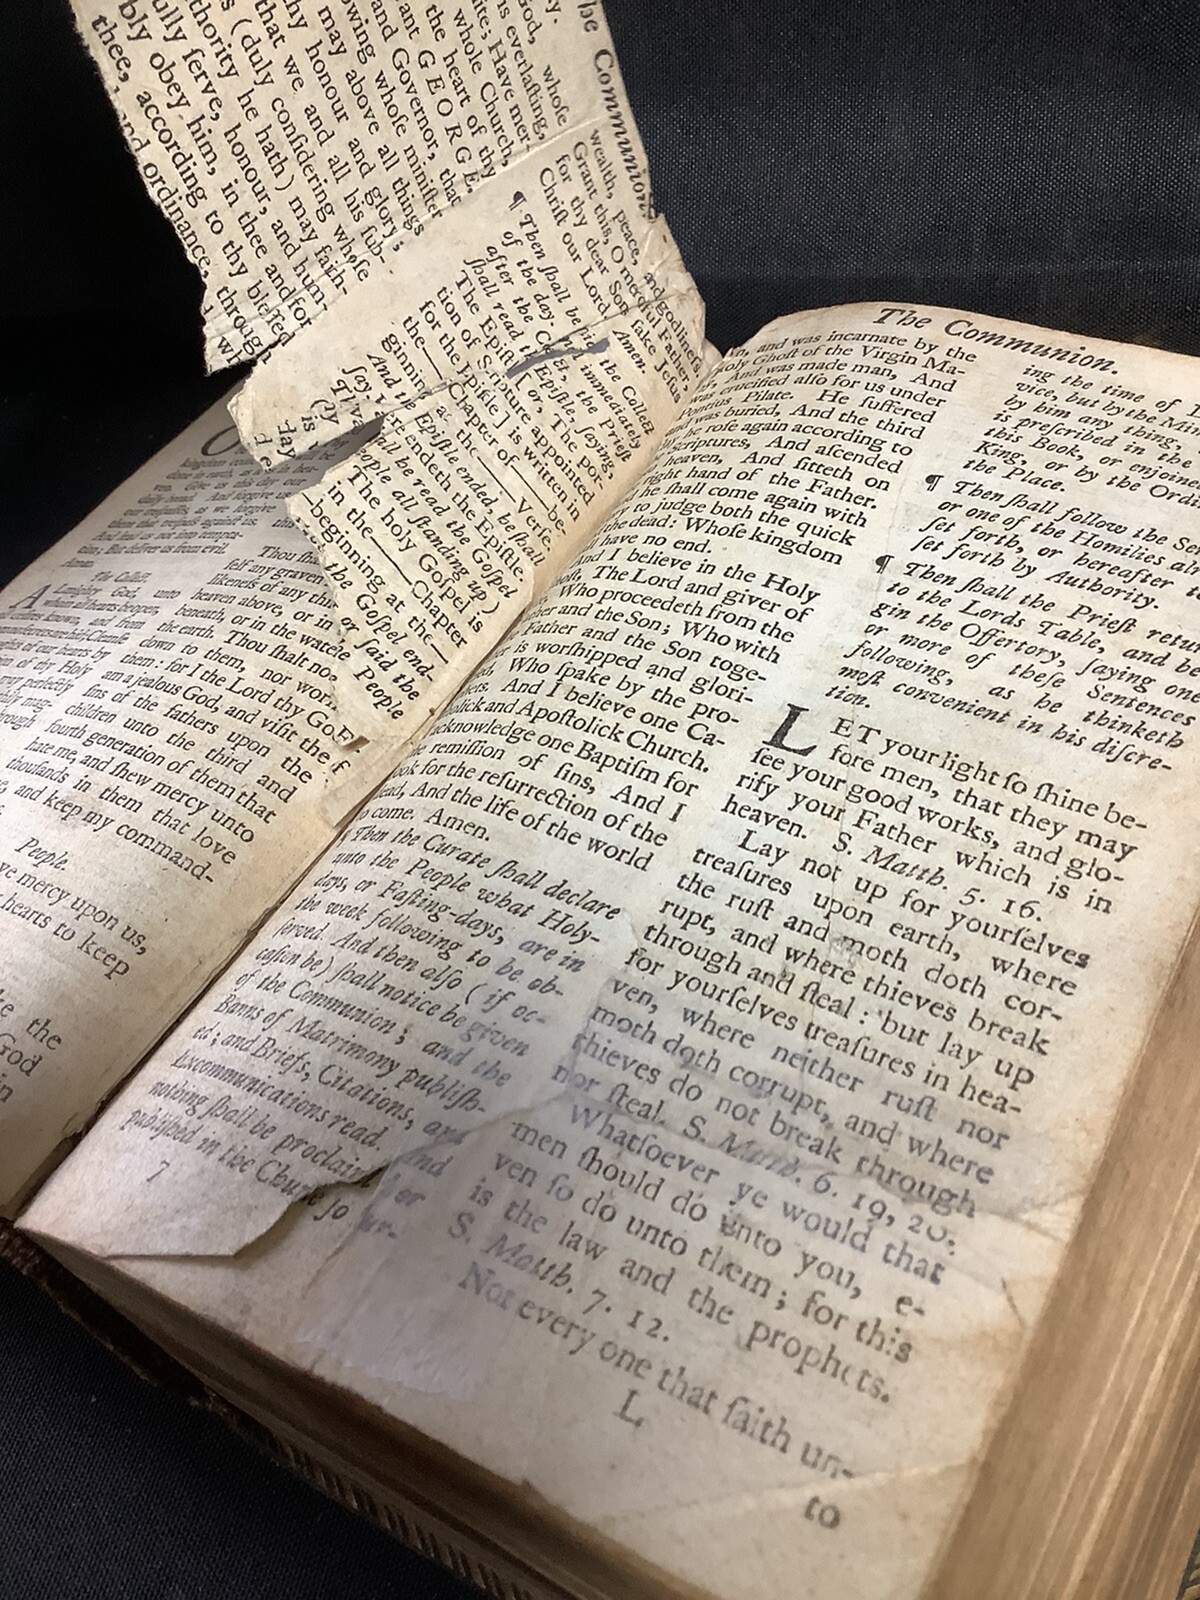 The Communion.
y.
God, whose
is everlaſting,
ite; Have mer-
whole Church,
the heart of thy
ant GEORGE,
and Governor, that
owing whoſe miniſter
may above all things
hy honour and glory;
that we and all his ſub-
s (duly conſidering whoſe
thority he hath) may faith-
ully ſerve, honour, and hum-
bly obey him, in thee and for
thee, according to thy bleſſed
and ordinance, through
wealth, peace, and godlineſs.
Grant this, O merciful Father,
for thy dear Son ſake Jeſus
Chriſt our Lord. Amen.
¶ Then ſhall be the Collect
of the day. and immediately
after the Collect, the Prieſt
ſhall read the Epiſtle, ſaying,
The Epiſtle [or, The por-
tion of Scripture appointed
for the Epiſtle] is written in
the—Chapter of—be-
ginning at the—Verſe.
And the Epiſtle ended, he ſhall
ſay, Here endeth the Epiſtle.
Then ſhall be read the Goſpel
(the People all ſtanding up)
The holy Goſpel is
in the—Chapter
beginning at the—
the Goſpel end-
or ſaid the
People
The Collect.
Almighty God, unto
whom all hearts be open,
Thou ſhalt
ſelf any graven
likeneſs of any thin
heaven above, or in
beneath, or in the water
the earth. Thou ſhalt not
down to them, nor worſ
them: for I the Lord thy God
am a jealous God, and viſit the
ſins of the fathers upon the
children unto the third and
fourth generation of them that
hate me, and ſhew mercy unto
thouſands in them that love
and keep my command-
People.
ve mercy upon us,
hearts to keep
the
God
in
The Communion.
and was incarnate by the
Holy Ghoſt of the Virgin Ma-
And was made man, And
was crucified alſo for us under
Pontius Pilate. He ſuffered
and was buried, And the third
he roſe again according to
ſcriptures, And aſcended
heaven, And ſitteth on
right hand of the Father.
he ſhall come again with
to judge both the quick
the dead: Whoſe kingdom
have no end.
And I believe in the Holy
The Lord and giver of
Who proceedeth from the
and the Son; Who with
Father and the Son toge-
is worſhipped and glori-
Who ſpake by the pro-
And I believe one Ca-
and Apoſtolick Church.
acknowledge one Baptiſm for
remiſſion of ſins, And I
look for the reſurrection of the
dead, And the life of the world
come. Amen.
Then the Curate ſhall declare
unto the People what Holy-
days, or Faſting-days, are in
the week following to be ob-
ſerved. And then alſo (if oc-
caſion be) ſhall notice be given
of the Communion; and the
Banns of Matrimony publiſh-
ed; and Briefs, Citations, and
Excommunications read. And
nothing ſhall be proclaim or
publiſhed in the Church
7
ing the time of
vice, but by the Min
by him any thing,
is preſcribed in the
this Book, or enjoine
King, or by the Ord
the Place.
¶ Then ſhall follow the Se
or one of the Homilies al
ſet forth, or hereafter t
ſet forth by Authority.
¶ Then ſhall the Prieſt retur
to the Lords Table, and be
gin the Offertory, ſaying one
or more of theſe Sentences
following, as he thinketh
moſt convenient in his diſcre-
tion.
LET your light ſo ſhine be-
fore men, that they may
ſee your good works, and glo-
rify your Father which is in
heaven. S. Matth. 5. 16.
Lay not up for yourſelves
treaſures upon earth, where
the ruſt and moth doth cor-
rupt, and where thieves break
through and ſteal: but lay up
for yourſelves treaſures in hea-
ven, where neither ruſt nor
moth doth corrupt, and where
thieves do not break through
nor ſteal. S. Matth. 6. 19, 20.
Whatſoever ye would that
men ſhould do unto you, e-
ven ſo do unto them; for this
is the law and the prophets.
S. Matth. 7. 12.
Not every one that ſaith un-
L
to